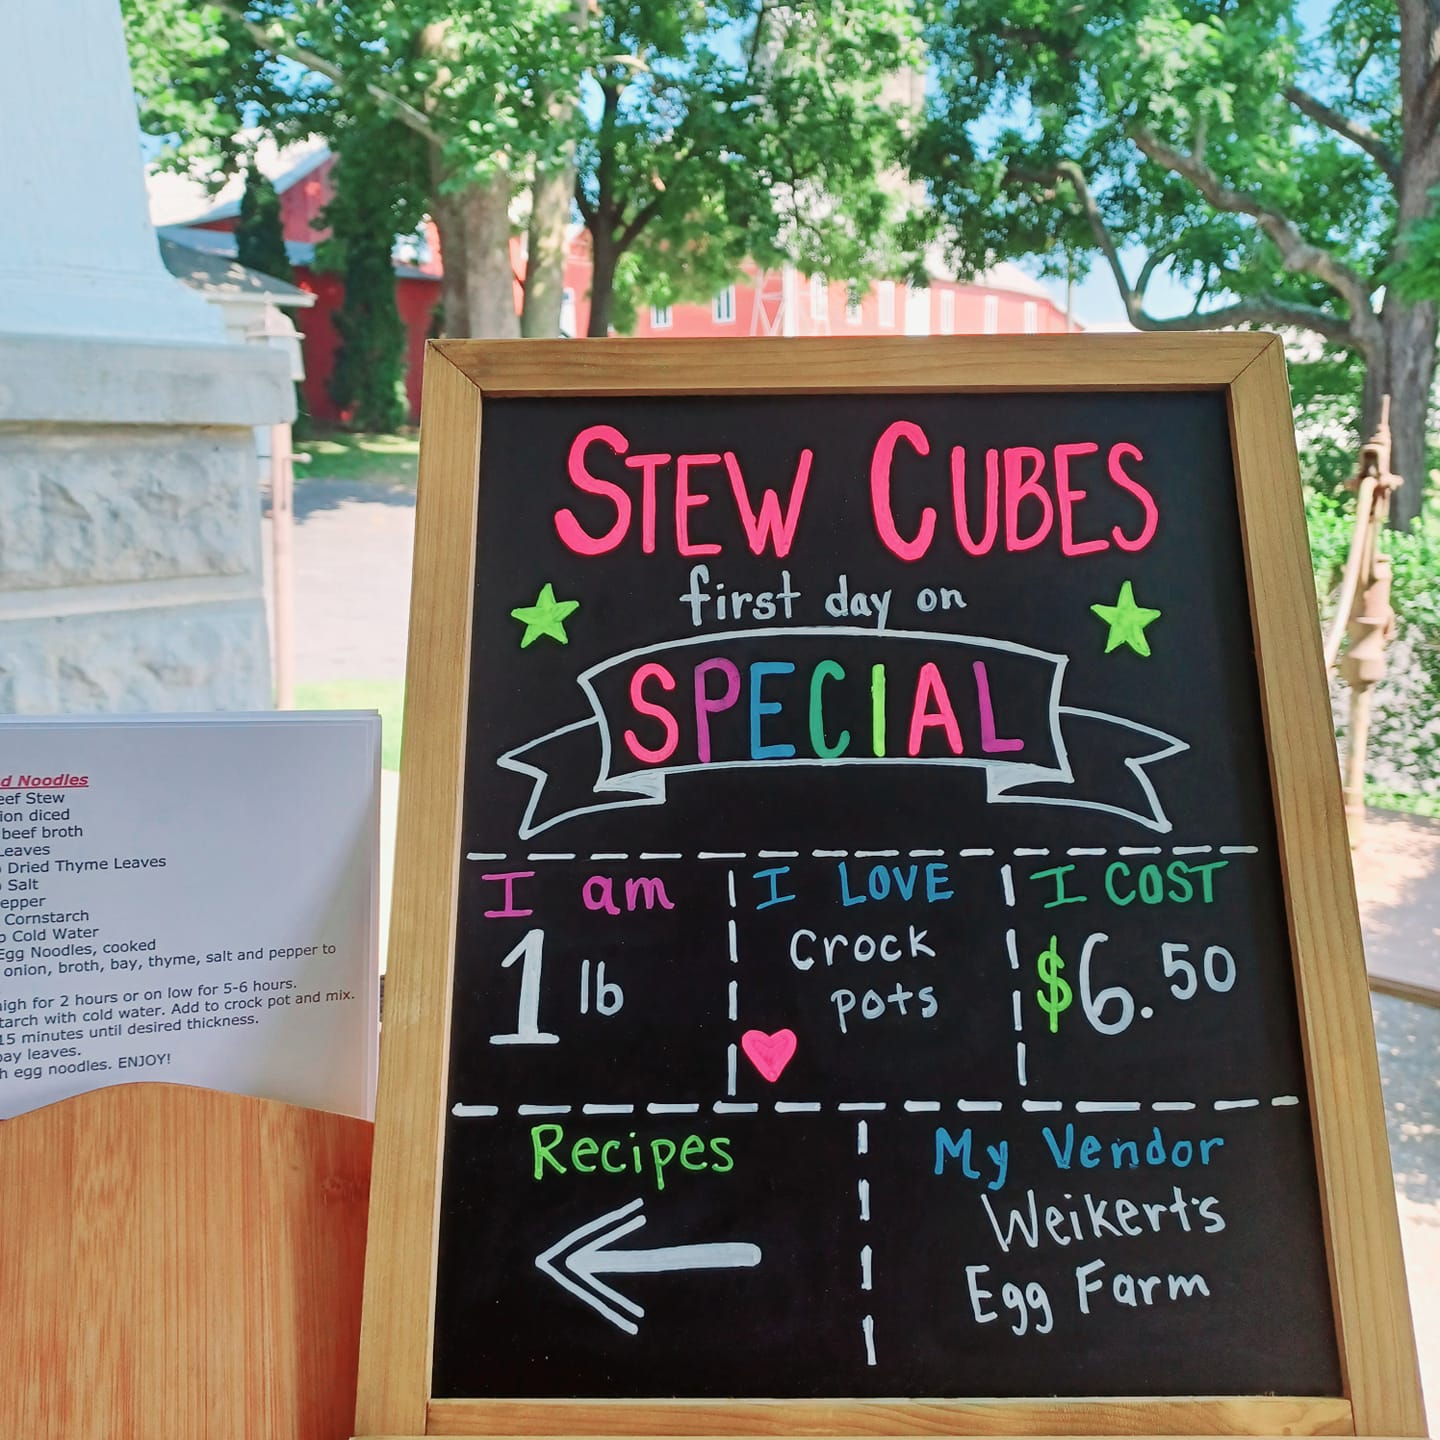 STEW CUBES
first day on
SPECIAL
I am
1 lb
I LOVE
Crock
pots
I COST
$6.50
Recipes
My Vendor
Weikert's
Egg Farm
Noodles
Stew
diced
beef broth
Leaves
Dried Thyme Leaves
Salt
Cornstarch
Cold Water
Egg Noodles, cooked
onion, broth, bay, thyme, salt and pepper to
for 2 hours or on low for 5-6 hours.
with cold water. Add to crock pot and mix.
15 minutes until desired thickness.
bay leaves.
egg noodles. ENJOY!